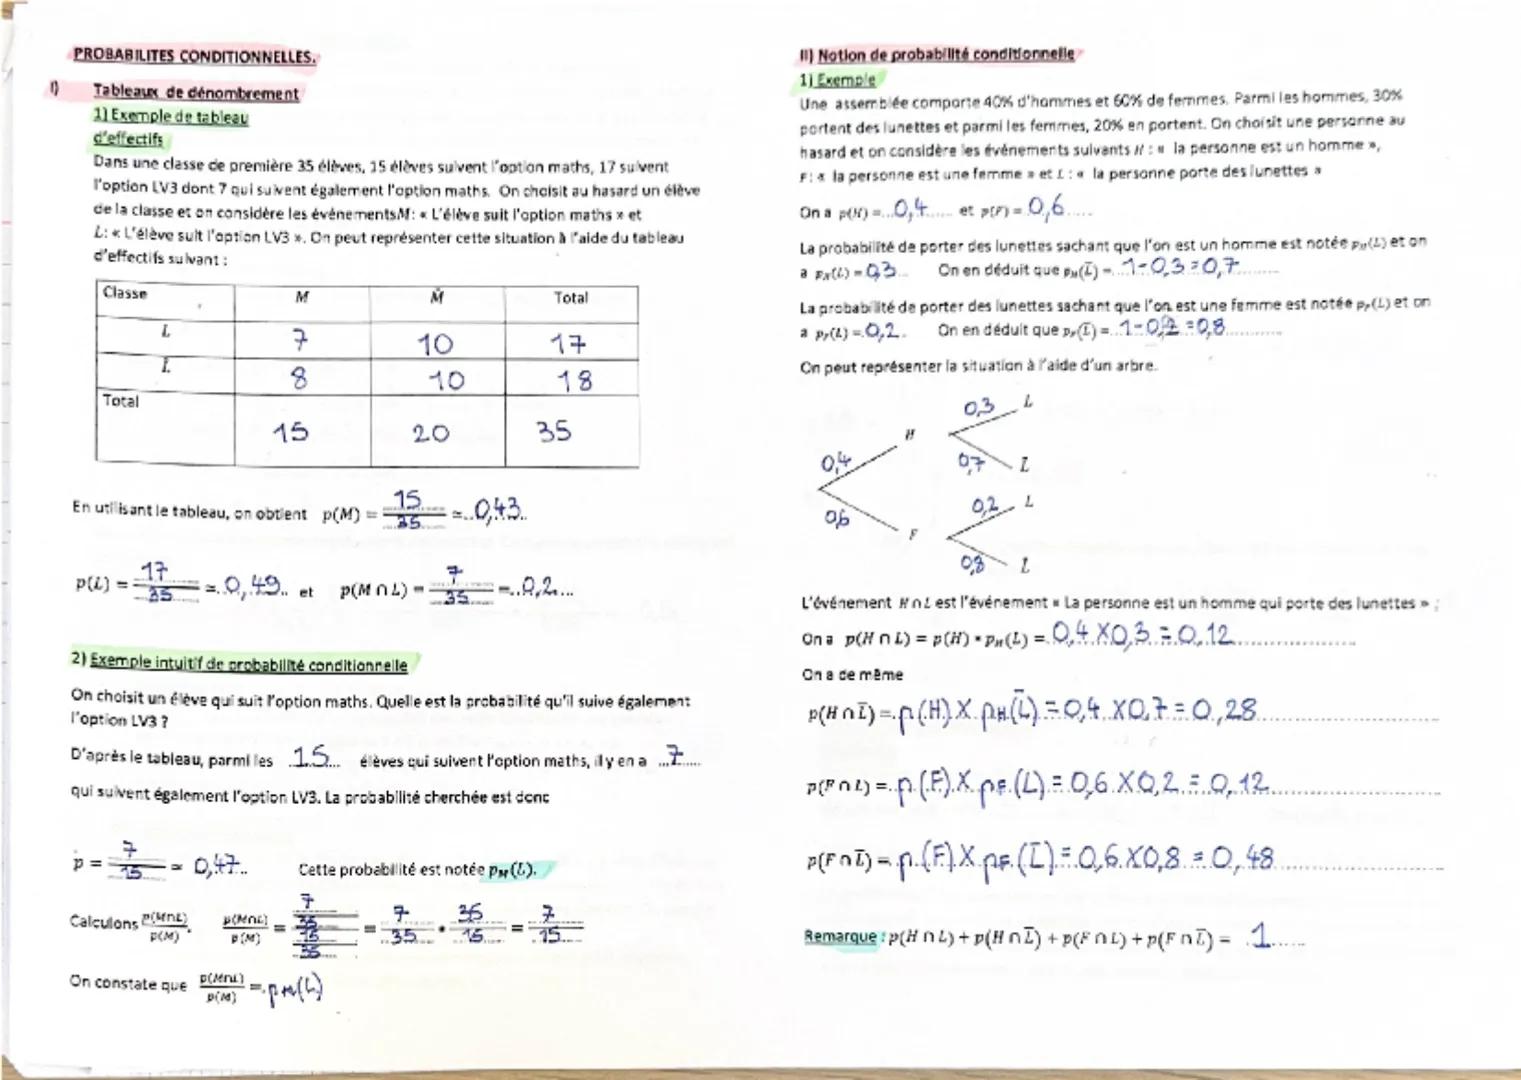 PROBABILITES CONDITIONNELLES.
I) Tableaux de dénombrement
1) Exemple de tableau
d'effectifs
Dans une classe de première 35 élèves, 15 élèves suivent l'option maths, 17 suivent
l'option LV3 dont 7 qui suivent également l'option maths. On choisit au hasard un élève
de la classe et on considère les événements M: « L'élève suit l'option maths » et
L: « L'élève suit l'option LV3 ». On peut représenter cette situation à l'aide du tableau
d'effectifs suivant :
Classe M M̄ Total
L 7 10 17
L̄ 8 10 18
Total 15 20 35
En utilisant le tableau, on obtient p(M) = 15/35 ≃ 0,43
p(L) = 17/35 ≃ 0,49 et p(M ∩ L) = 7/35 = 0,2
2) Exemple intuitif de probabilité conditionnelle
On choisit un élève qui suit l'option maths. Quelle est la probabilité qu'il suive également
l'option LV3 ?
D'après le tableau, parmi les 15 élèves qui suivent l'option maths, il y en a 7
qui suivent également l'option LV3. La probabilité cherchée est donc
p = 7/15 ≃ 0,47 Cette probabilité est notée pM(L).
Calculons p(M∩L)/p(M). p(M∩L)/p(M) = (7/35)/(15/35) = 7/35 * 35/15 = 7/15
On constate que p(M∩L)/p(M) = pM(L)
II) Notion de probabilité conditionnelle
1) Exemple
Une assemblée comporte 40% d'hommes et 60% de femmes. Parmi les hommes, 30%
portent des lunettes et parmi les femmes, 20% en portent. On choisit une personne au
hasard et on considère les événements suivants H : « la personne est un homme »,
F: « la personne est une femme » et L : « la personne porte des lunettes »
On a p(H) = 0,4 et p(F) = 0,6
La probabilité de porter des lunettes sachant que l'on est un homme est notée pH(L) et on
a pH(L) = 0,3 On en déduit que pH(L̄) = 1-0,3 = 0,7
La probabilité de porter des lunettes sachant que l'on est une femme est notée pF(L) et on
a pF(L) = 0,2 On en déduit que pF(L̄) = 1-0,2 = 0,8
On peut représenter la situation à l'aide d'un arbre.
0,3 L
H
0,4 0,7 L̄
0,2 L
0,6
F
0,8 L̄
L'événement H∩L est l'événement « La personne est un homme qui porte des lunettes » ;
On a p(H ∩ L) = p(H) * pH(L) = 0,4 X 0,3 = 0,12
On a de même
p(H ∩ L̄) = p(H) X pH(L̄) = 0,4 X 0,7 = 0,28
p(F ∩ L) = p(F) X pF(L) = 0,6 X 0,2 = 0,12
p(F ∩ L̄) = p(F) X pF(L̄) = 0,6 X 0,8 = 0,48
Remarque : p(H ∩ L) + p(H ∩ L̄) + p(F ∩ L) + p(F ∩ L̄) = 1